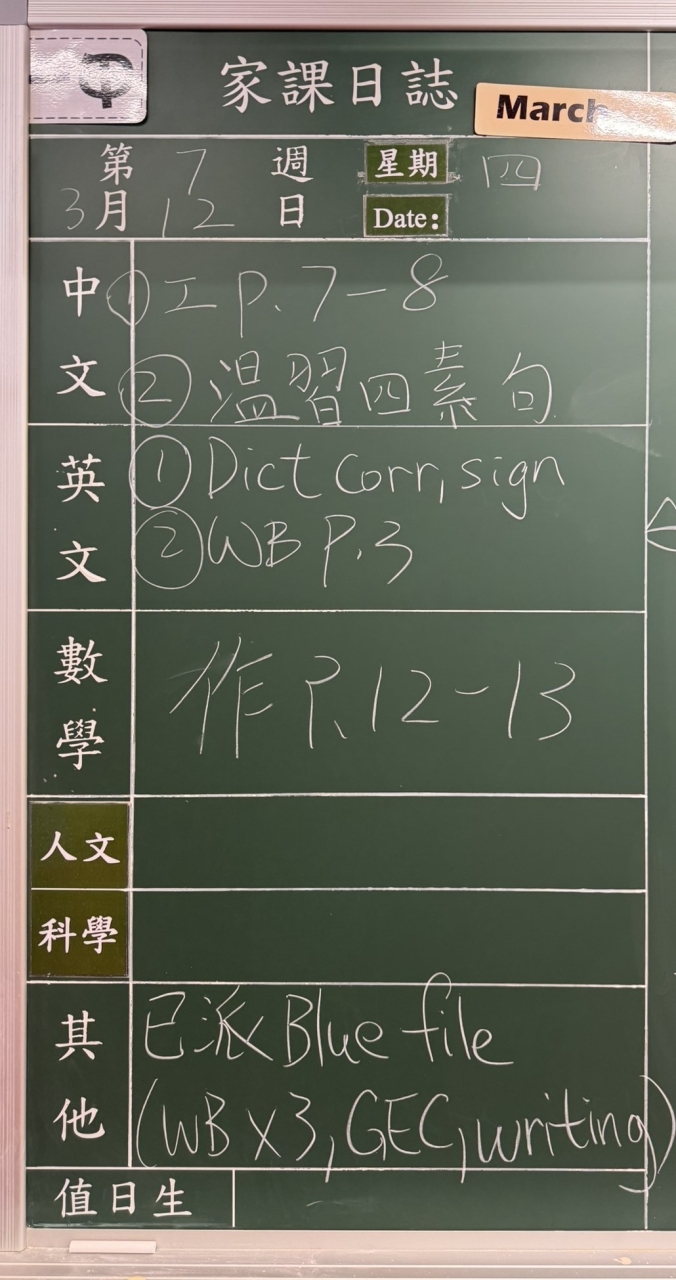 家課日誌
March
第 7 週 星期 四
3月 12 日 Date:
中文 ① 工 P.7-8
② 溫習四素句
英文 ① Dict Corr, sign
② WB P.3
數學 作 P.12-13
人文
科學
其他 已派 Blue file
(WB x3, GEC, writing)
值日生